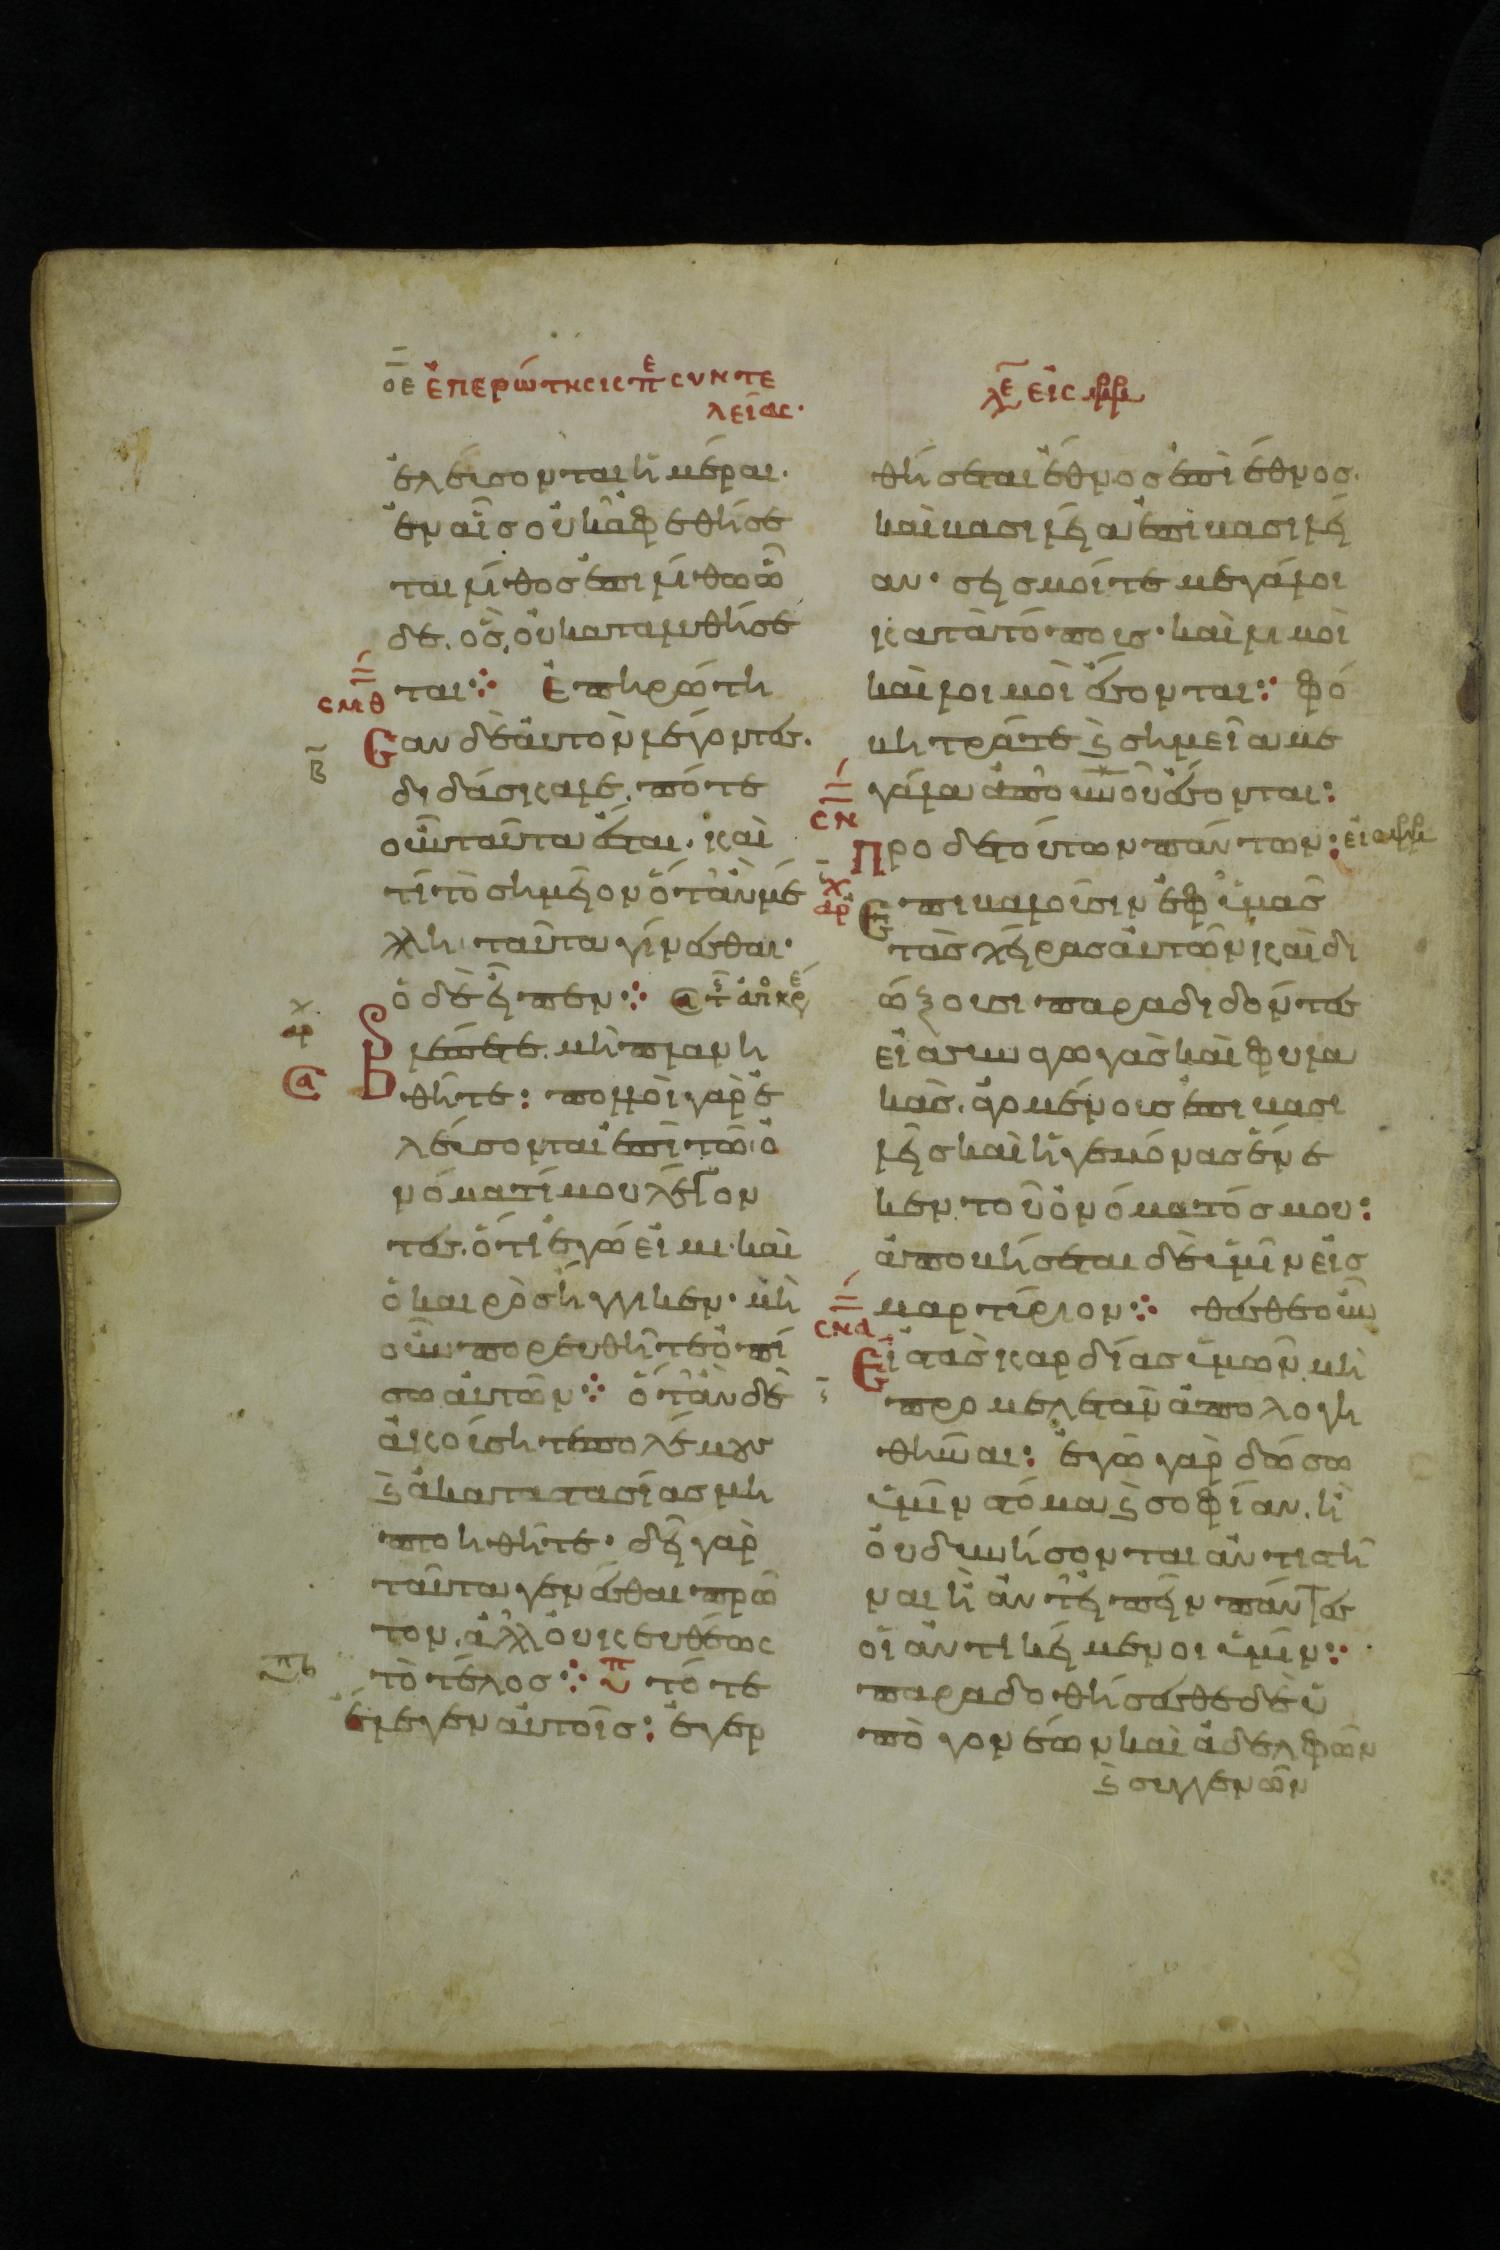 ΟΕ ἐπερώτησις π ε συντε
λείας·
ἐλεύσονται ἡμέραι·
ἐν αἷς οὐκ ἀφεθήσε
ται λίθος ἐπι λίθω ὧ
δε. ὃς, οὐ καταλυθήσε
ται⁘ Ἐπηρώτη
σμθ
Σαν δὲ ἀυτὸν λέγοντες.
β
διδάσκαλε. πότε
οὖν ταῦτα ἔσται. καὶ
τί τὸ σημεῖον ὅταν μέ
λλη ταῦτα γίνεσθαι·
ὁ δὲ εἶπεν⁘
αρ
βλέπετε. μὴ πλανη
θῆτε: πολλοὶ γὰρ ἐ
λεύσονται ἐπὶ τῶ ὀ
νόματί μου λέγον
τες. ὅτι ἐγώ εἰμι. καὶ
ὁ καιρὸς ἤγγικεν· μὴ
οὖν πορευθῆτε ὀπί
σω ἀυτῶν⁘ ὅταν δὲ
ἀκούσητε πολέμους
ϗ ἀκαταστασίας μὴ
πτοηθῆτε· δεῖ γὰρ
ταῦτα γενέσθαι πρῶ
τον. ἀλλ οὐκ ευθέως
τὸ τέλος⁘ τότε
ἔλεγεν ἀυτοῖς: ἐγερ
θήσεται ἔθνος ἐπὶ ἔθνος·
καὶ βασιλεία ἐπὶ βασιλεί
αν· σεισμοί τε μεγάλοι
κατὰ τόποις· καὶ λιμοὶ
καὶ λοιμοὶ ἔσονται: φό
βητρά τε ϗ σημεῖα με
γάλα ἀπο οὐνου ἔσονται:
σν
Προ δε τούτων πάντων:
Επιβαλοῦσιν ἐφ ὑμᾶς
αρ
τὰς χεῖρας ἀυτῶν καὶ δι
ώξουσι παραδιδόντες
εἰς συναγωγὰς καὶ φυλα
κὰς. ἀγομένους ἐπι βασι
λεῖς καὶ ἡγεμόνας ἕνε
κεν τοῦ ὀνόματός μου:
ἀποβήσεται δὲ ὑμῖν εἰς
μαρτύριον⁘ θέσθε οὖν
σνα
Εἰς τὰς καρδίας ὑμῶν μὴ
προμελετᾶν ἀπολογη
θῆναι: ἐγὼ γὰρ δώσω
ὑμῖν στόμα ϗ σοφίαν. ἧ
οὐ δυνήσονται ἀντιστῆ
ναι ἢ ἀντειπεῖν πάντες
οἱ ἀντικείμενοι ὑμῖν⁘
παραδοθήσεσθε δὲ ὑ
πὸ γονέων καὶ ἀδελφῶν
ϗ συγγενῶν